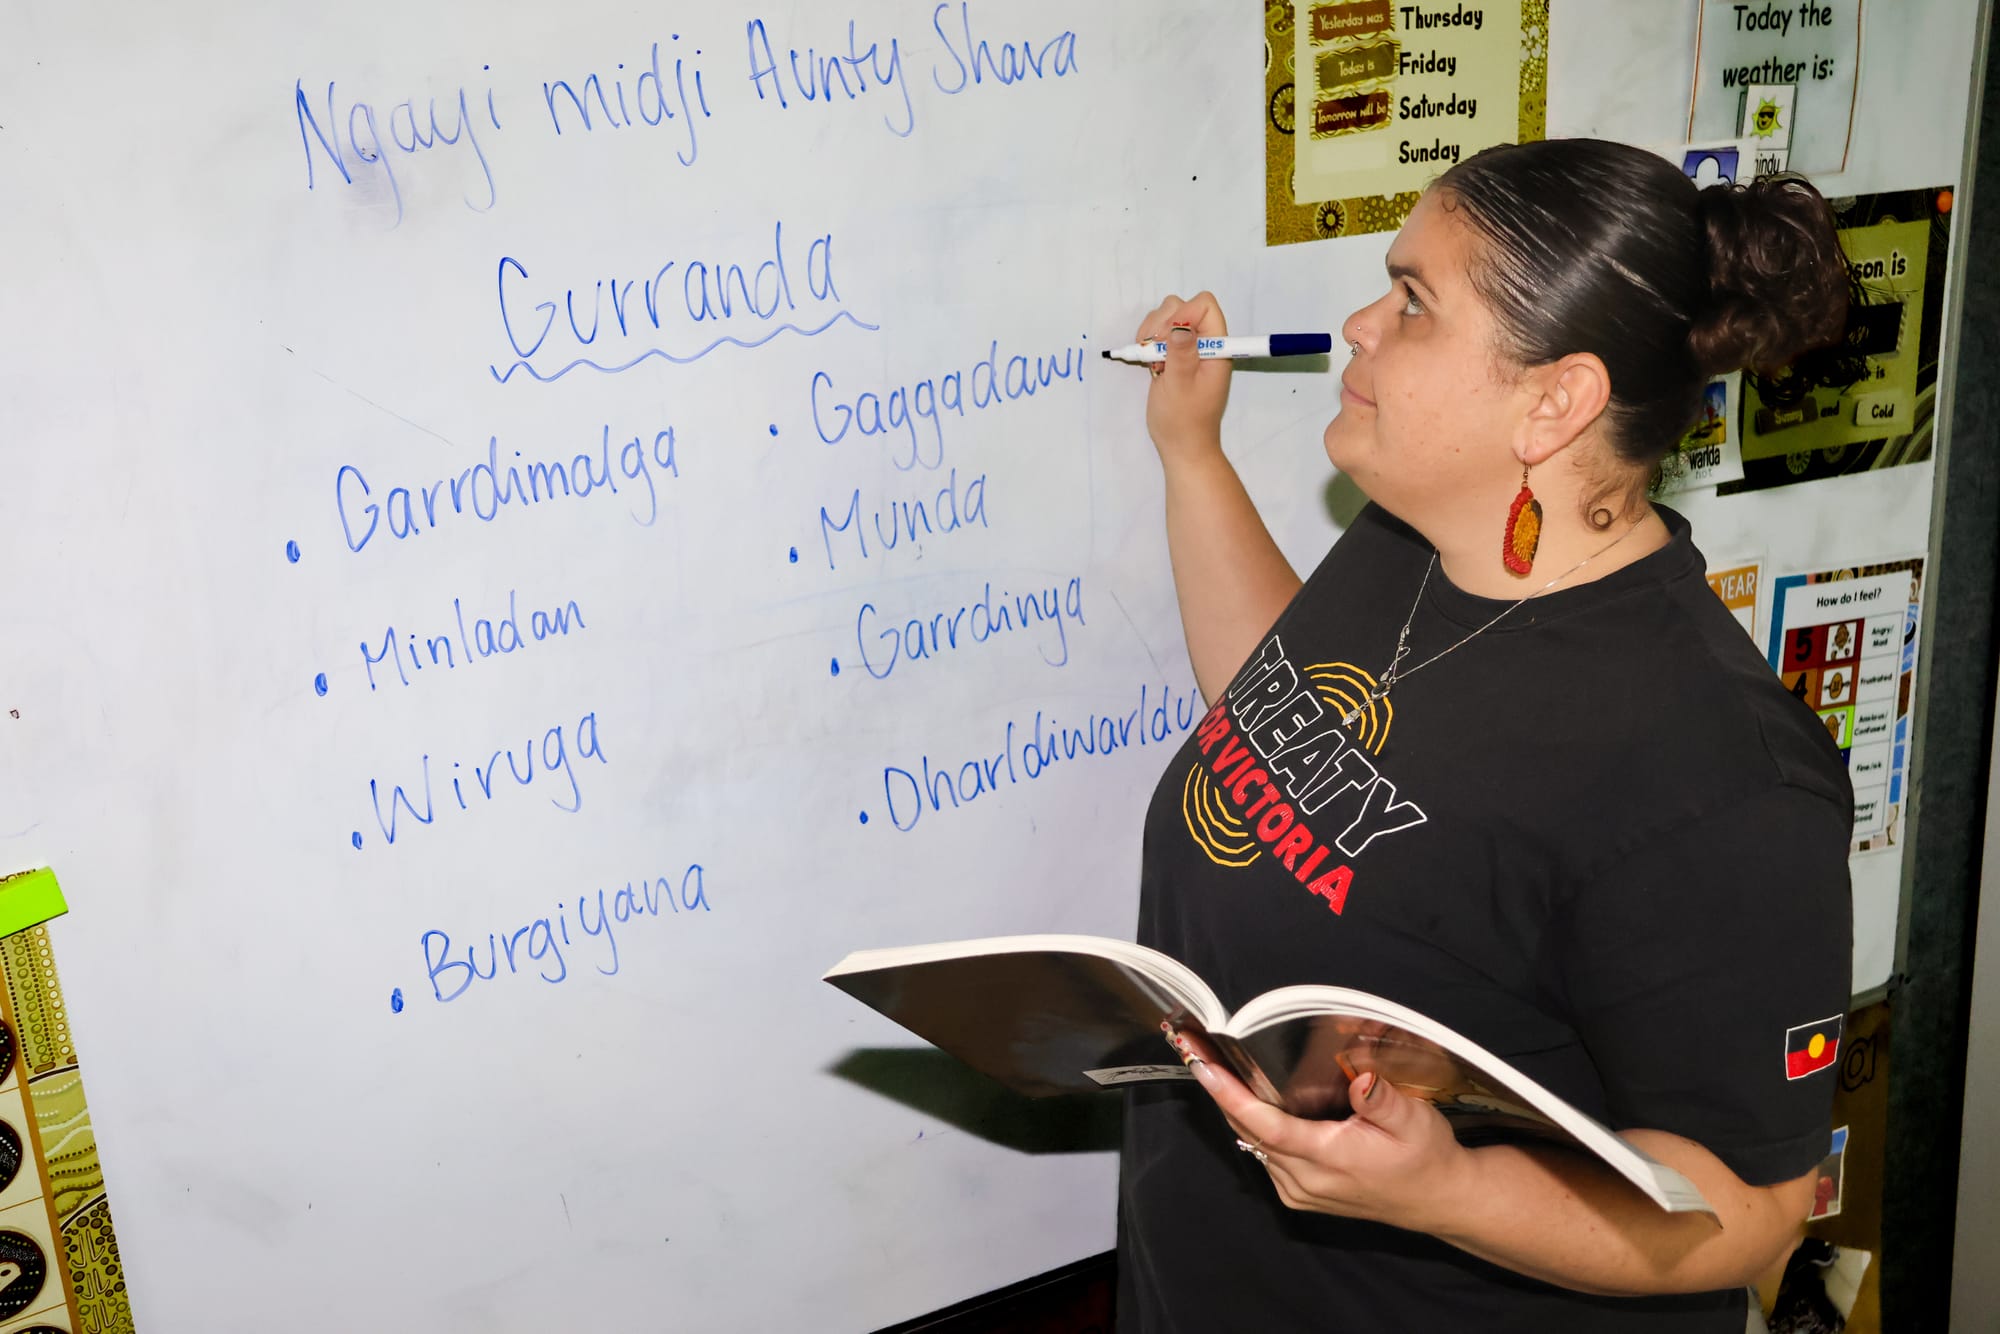 Ngayi midji Aunty Shara
Gurranda
• Garrdimalga
• Minladan
• Wiruga
• Burgiyana
• Gaggadawi
• Munda
• Garrdinya
• Dharldiwarldu
Yesterday was Thursday
Today is Friday
Tomorrow will be Saturday
Sunday
Today the
weather is:
son is
is
Sunny and Cold
wanda
not
YEAR
How do I feel?
5 Angry/
Mad
4 Frustrated
Anxious/
Confused
Fine/ok
Happy/
Good
TREATY
FOR VICTORIA